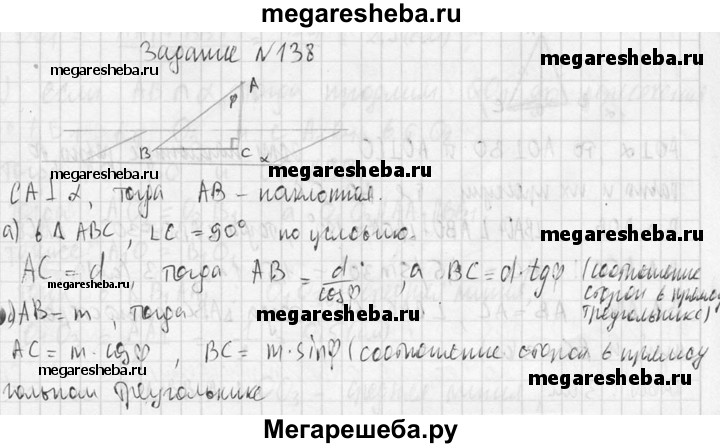 megaresheba.ru
Задание №138
megaresheba.ru
megaresheba.ru
A
φ
B
C
α
megaresheba.ru
megaresheba.ru
CA⊥α, тогда AB – наклонная.
а) в Δ ABC, ∠C = 90° по условию.
AC = d, тогда AB = d/cosφ, а BC = d·tgφ (соотношение
сторон в прямоу
треугольнике)
megaresheba.ru
megaresheba.ru
) AB = m, тогда
AC = m·cosφ, BC = m·sinφ (соотношение сторон в прямоу
гольном треугольнике
megaresheba.ru
megaresheba.ru
Мегарешеба.ру